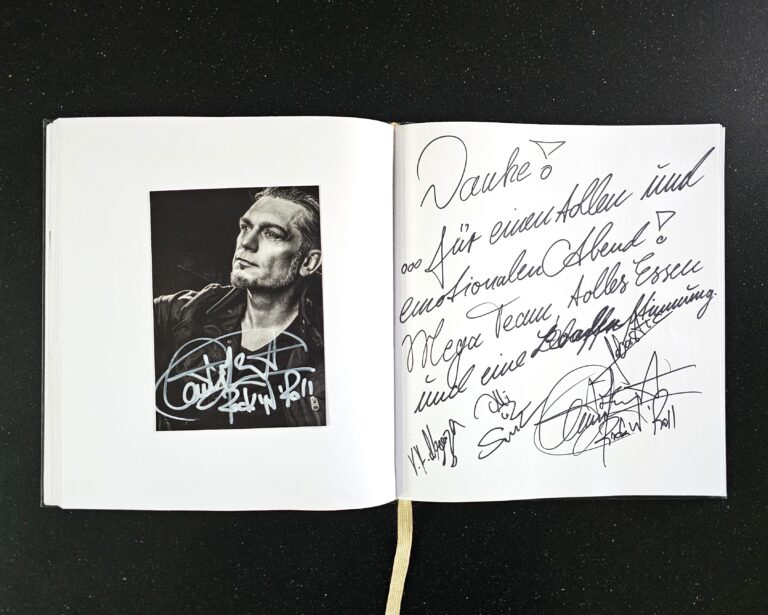 Rock'n'Roll
Danke!
... für einen tollen und
emotionalen Abend!
Mega Team tolles Essen
und eine Stimmung.
Rock'n'Roll